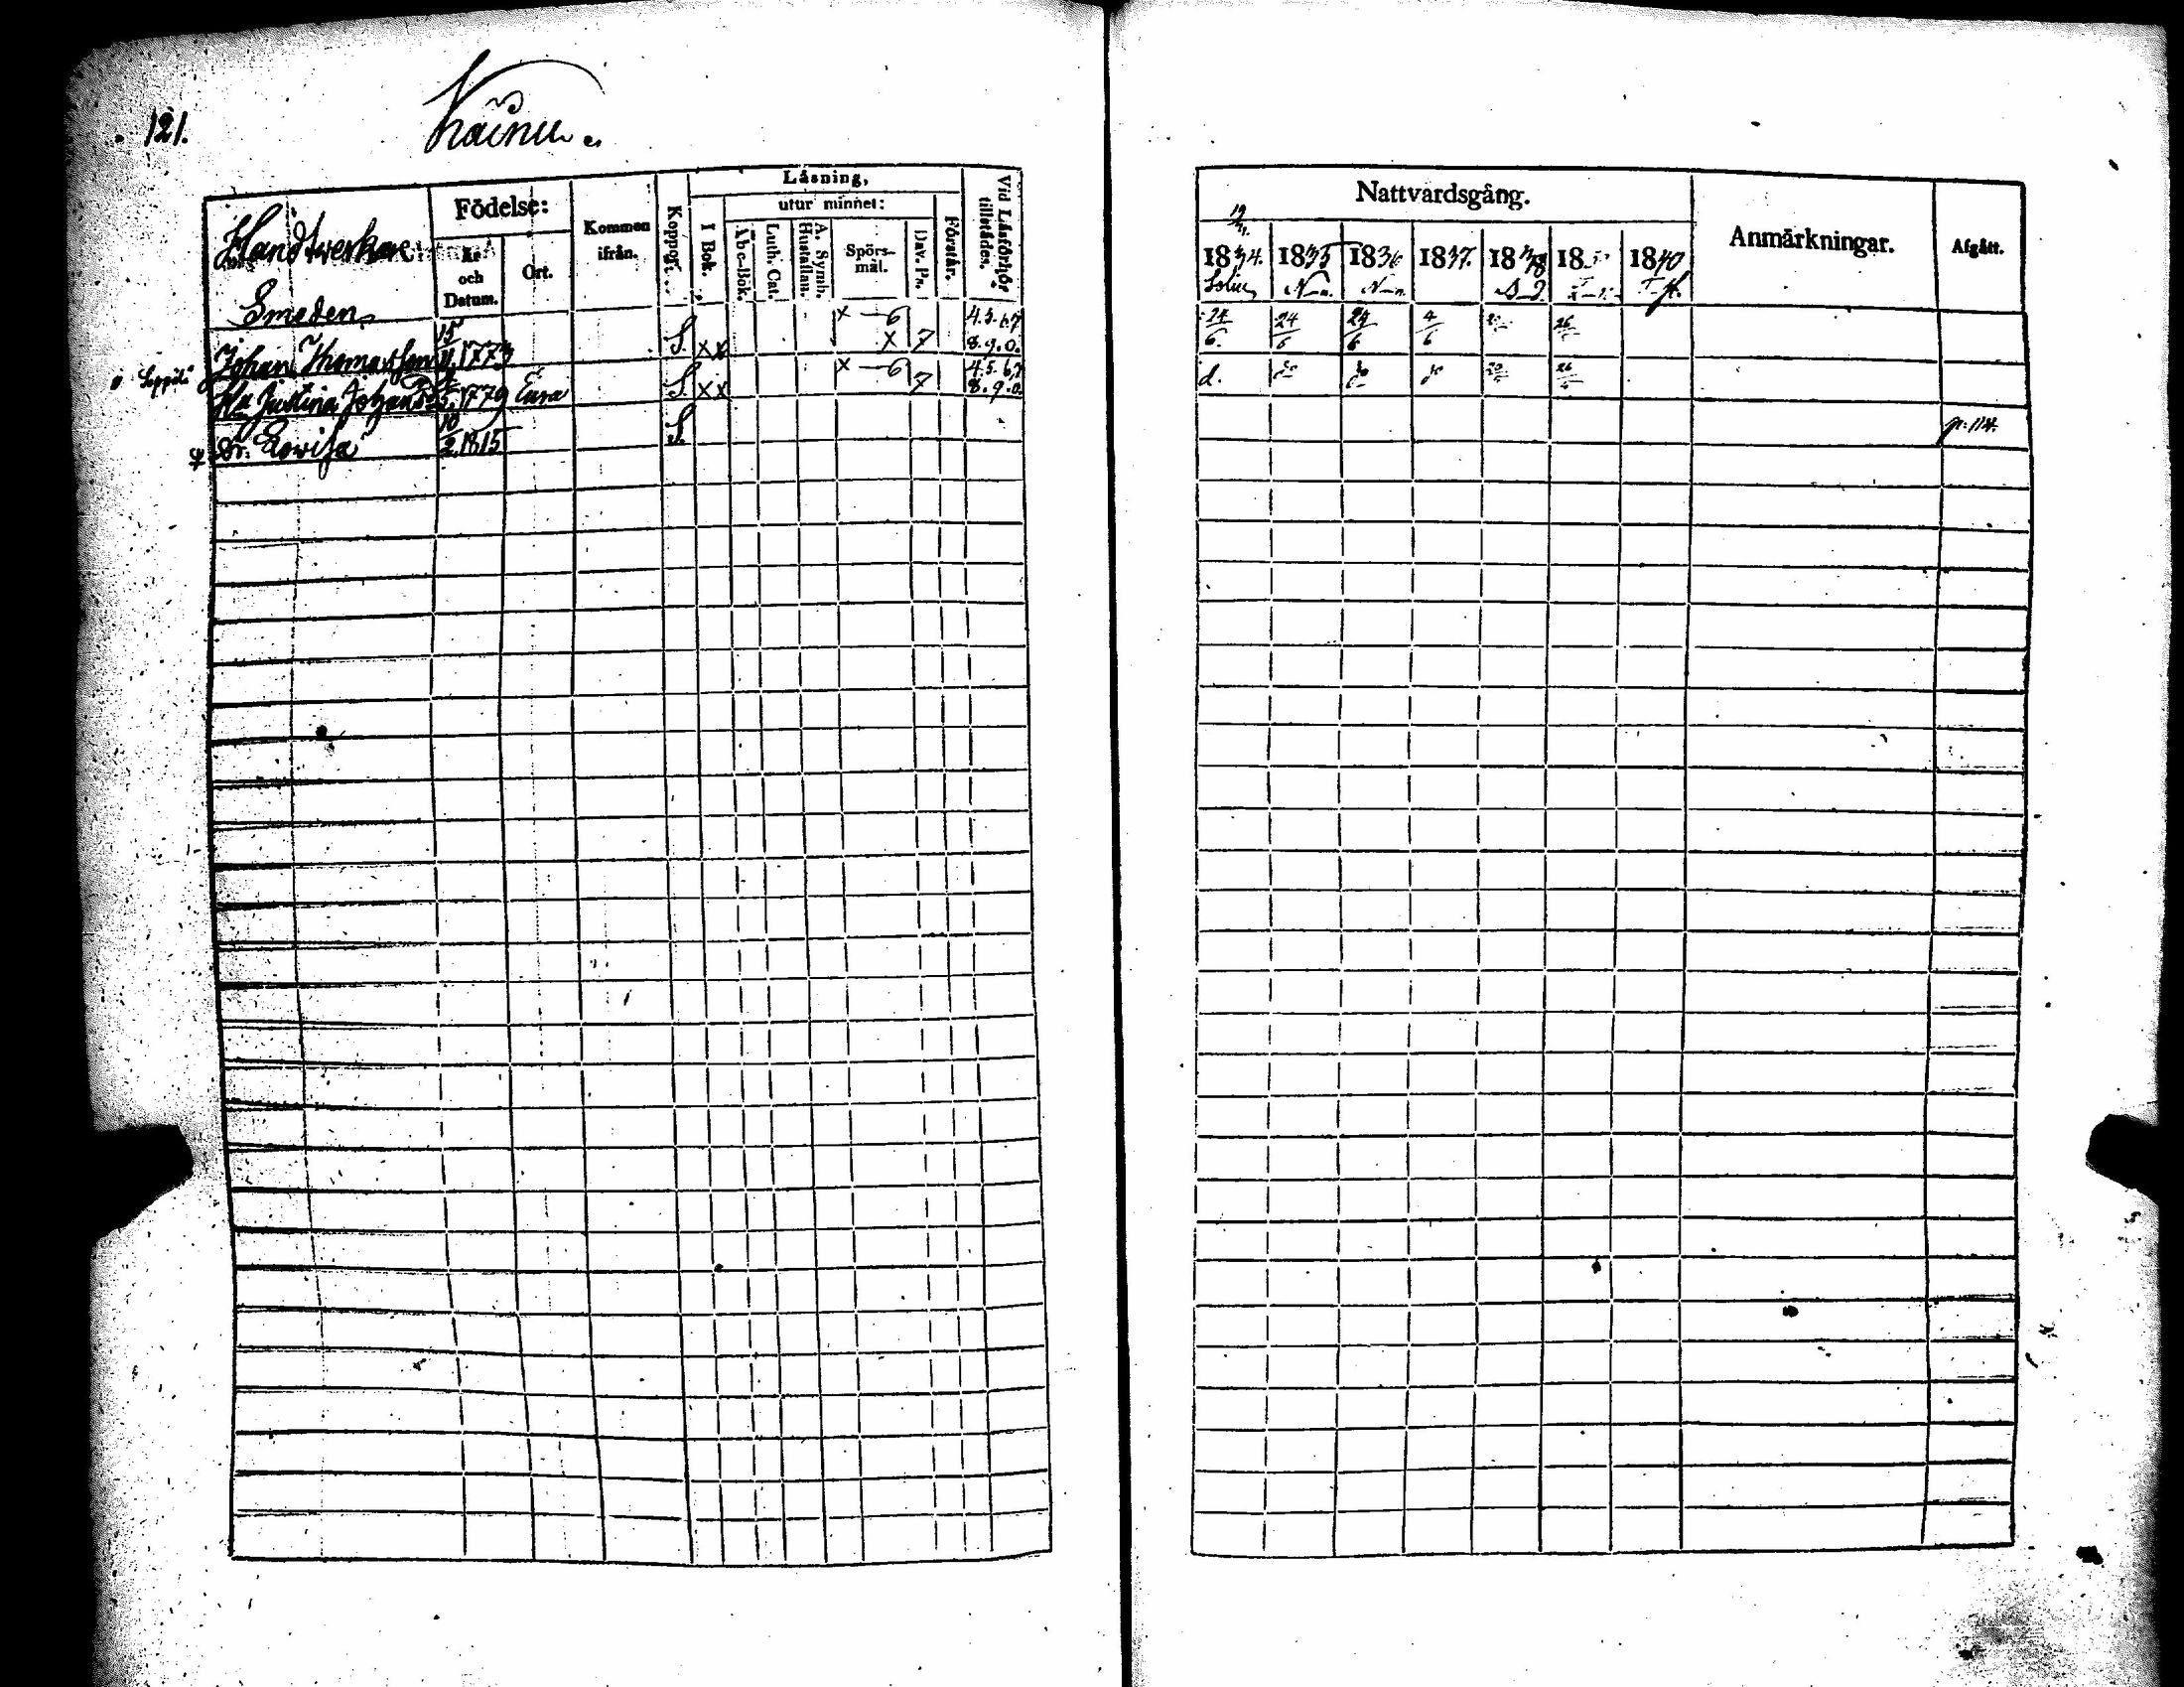 121.
Kainu.
Handtverkare
Födelse:
År och Datum.
Ort.
Kommen ifrån.
Koppor.
Läsning,
I Bok.
utur minnet:
Abc-Bok.
Luth. Cat.
A. Symb. Hustaflan.
Spörsmål.
Dav. Ps.
Förstår.
Vid Läsförhör tillstädes.
Smeden
Johan Thomasson 15/11 1773 S. xx x—6 x 7 4.5.6.7 8.9.0.
"Seppälä"
Hu Justina Johansdr 1779 Eura S. xx x—6 7 4.5.6.7 8.9.0
Dr. Lovisa 10/2 1815 S.
Nattvardsgång.
Anmärkningar.
Afgått.
19/
1834. 1835 1836 1837. 1838 18 1840
N—n. N—n.
24/6. 24/6 24/6 4/6 26
d. 26
p. 114.